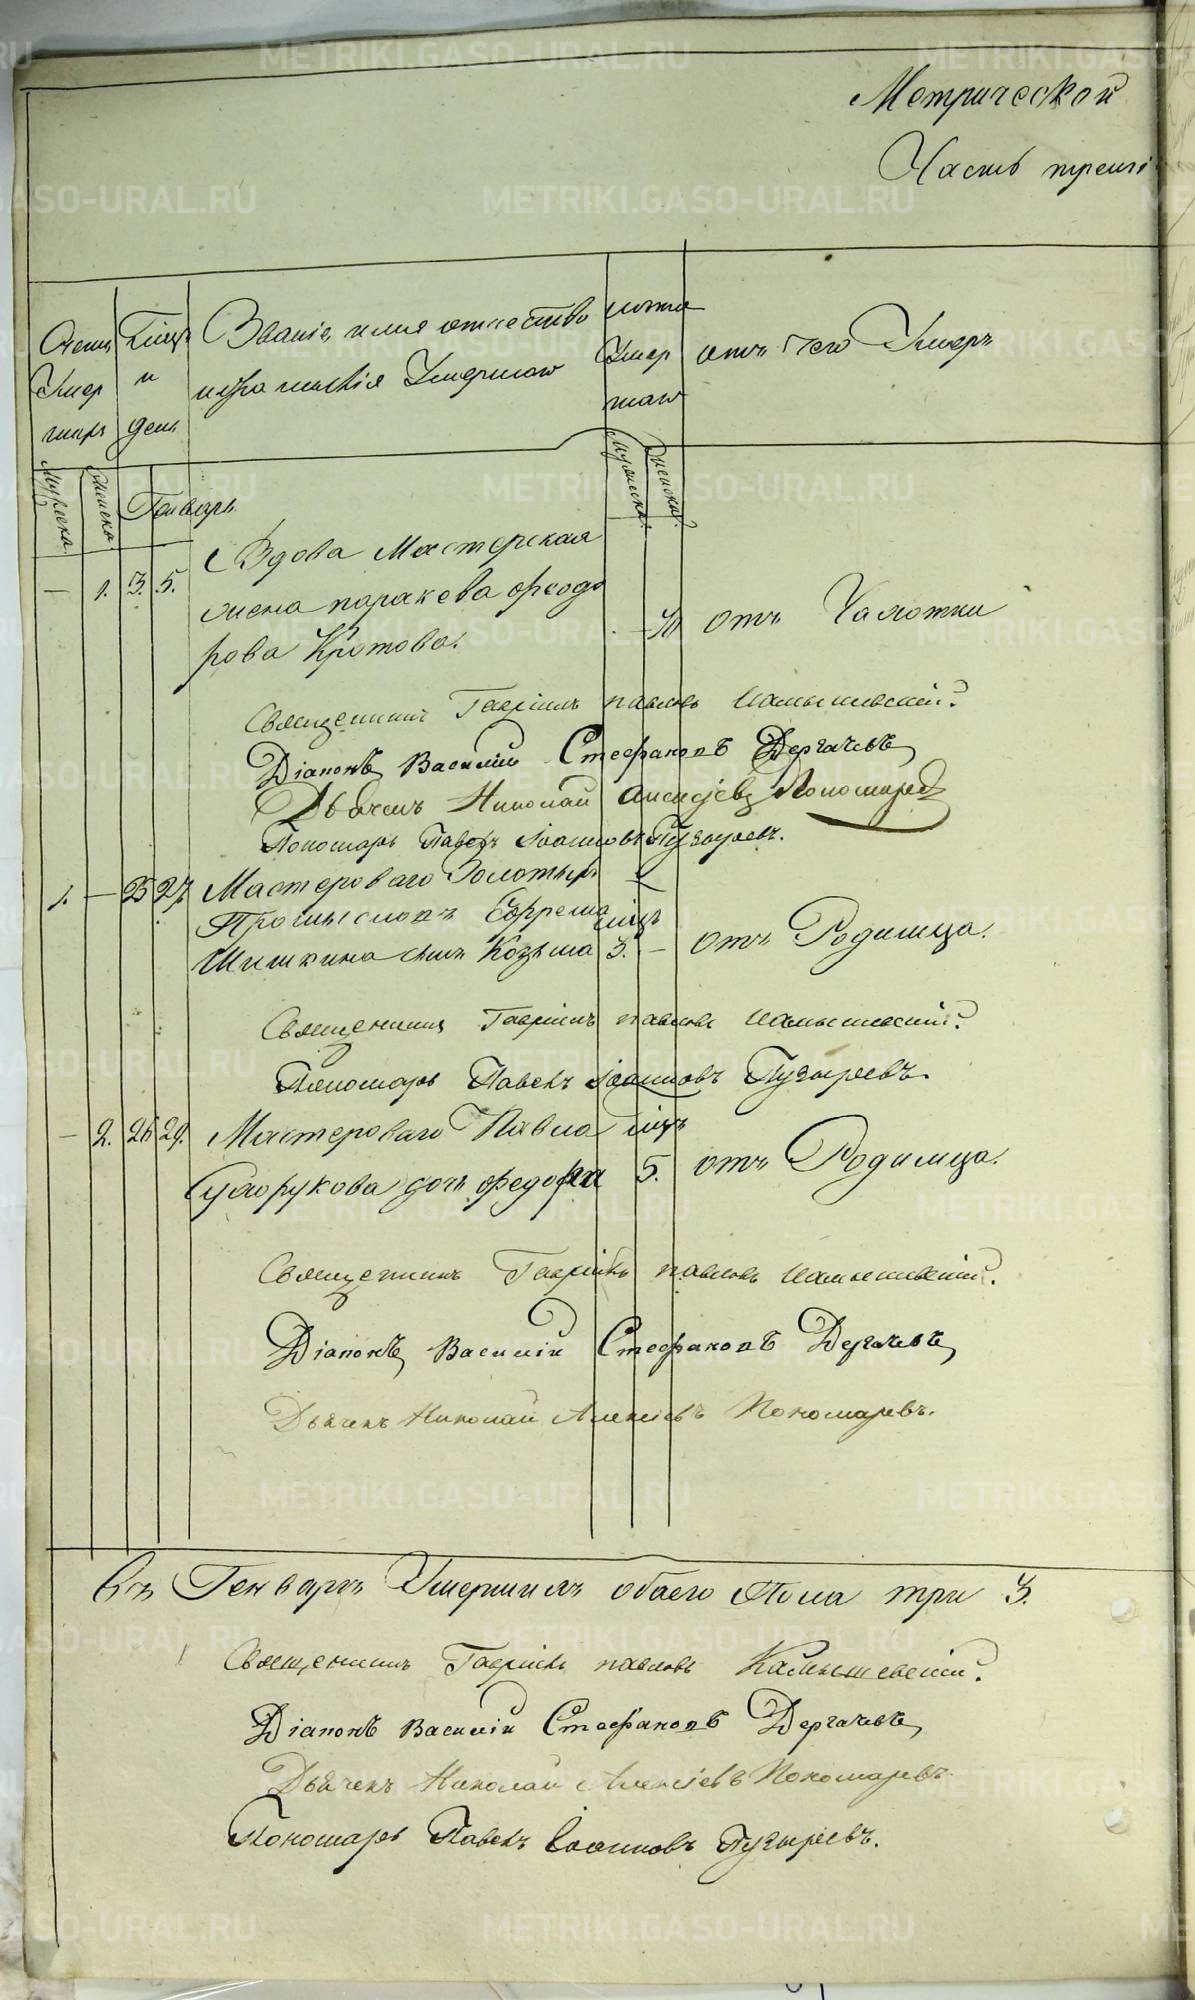 Метрической
Часть трети
Счетъ Умер шихъ
Мсцъ и день
Званіе имя отчество и фамилія Умершаго
лѣта Умер шаго
отъ чего Умеръ
Мужеска. Женска. Генварь. Мужеска. Женска.
Вдова Мастерская
— 1. 3. 5. жена паракева феодо
рова Кротова. отъ Чахотки
Священникъ Гавріилъ павловъ Камышевскій.
Діаконъ Василій Стефановъ Дергачевъ
Дьячекъ Николай Алексіевъ Пономаревъ
Пономарь Павелъ Іоанновъ Пузыревъ.
1. — 25 27. Мастероваго Золотыхъ
Промысловъ Ефрема мцъ
Шишкина сынъ Козьма 3. — отъ Родимца.
Священникъ Гавріилъ павловъ Камышевскій.
Пономарь Павелъ Іоанновъ Пузыревъ.
— 2. 26 29. Мастероваго Павла мцъ
Сухорукова дочь федора 5. отъ Родимца.
Священникъ Гавріилъ павловъ Камышевскій.
Діаконъ Василій Стефановъ Дергачевъ
Дьячекъ Николай Алексіевъ Пономаревъ.
Въ Генварѣ Умершихъ обаего Пола три 3.
Священникъ Гавріилъ павловъ Камышевскій.
Діаконъ Василій Стефановъ Дергачевъ
Дьячекъ Николай Алексіевъ Пономаревъ
Пономарь Павелъ Іоанновъ Пузыревъ.
METRIKI.GASO-URAL.RU